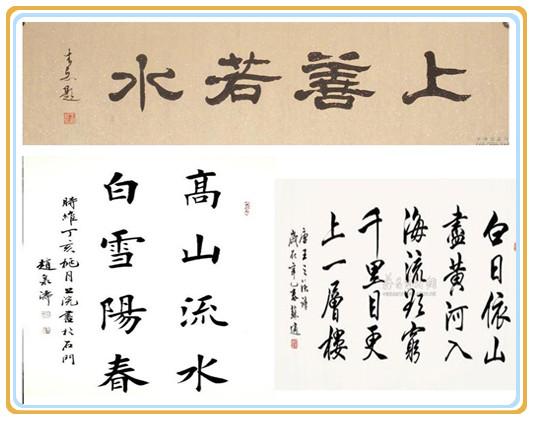 上善若水
題
高山流水
白雪陽春
時維丁亥桃月上浣書於石門
趙
白日依山
盡黃河入
海流欲窮
千里目更
上一層樓
唐王之渙詩
歲在辛巳春